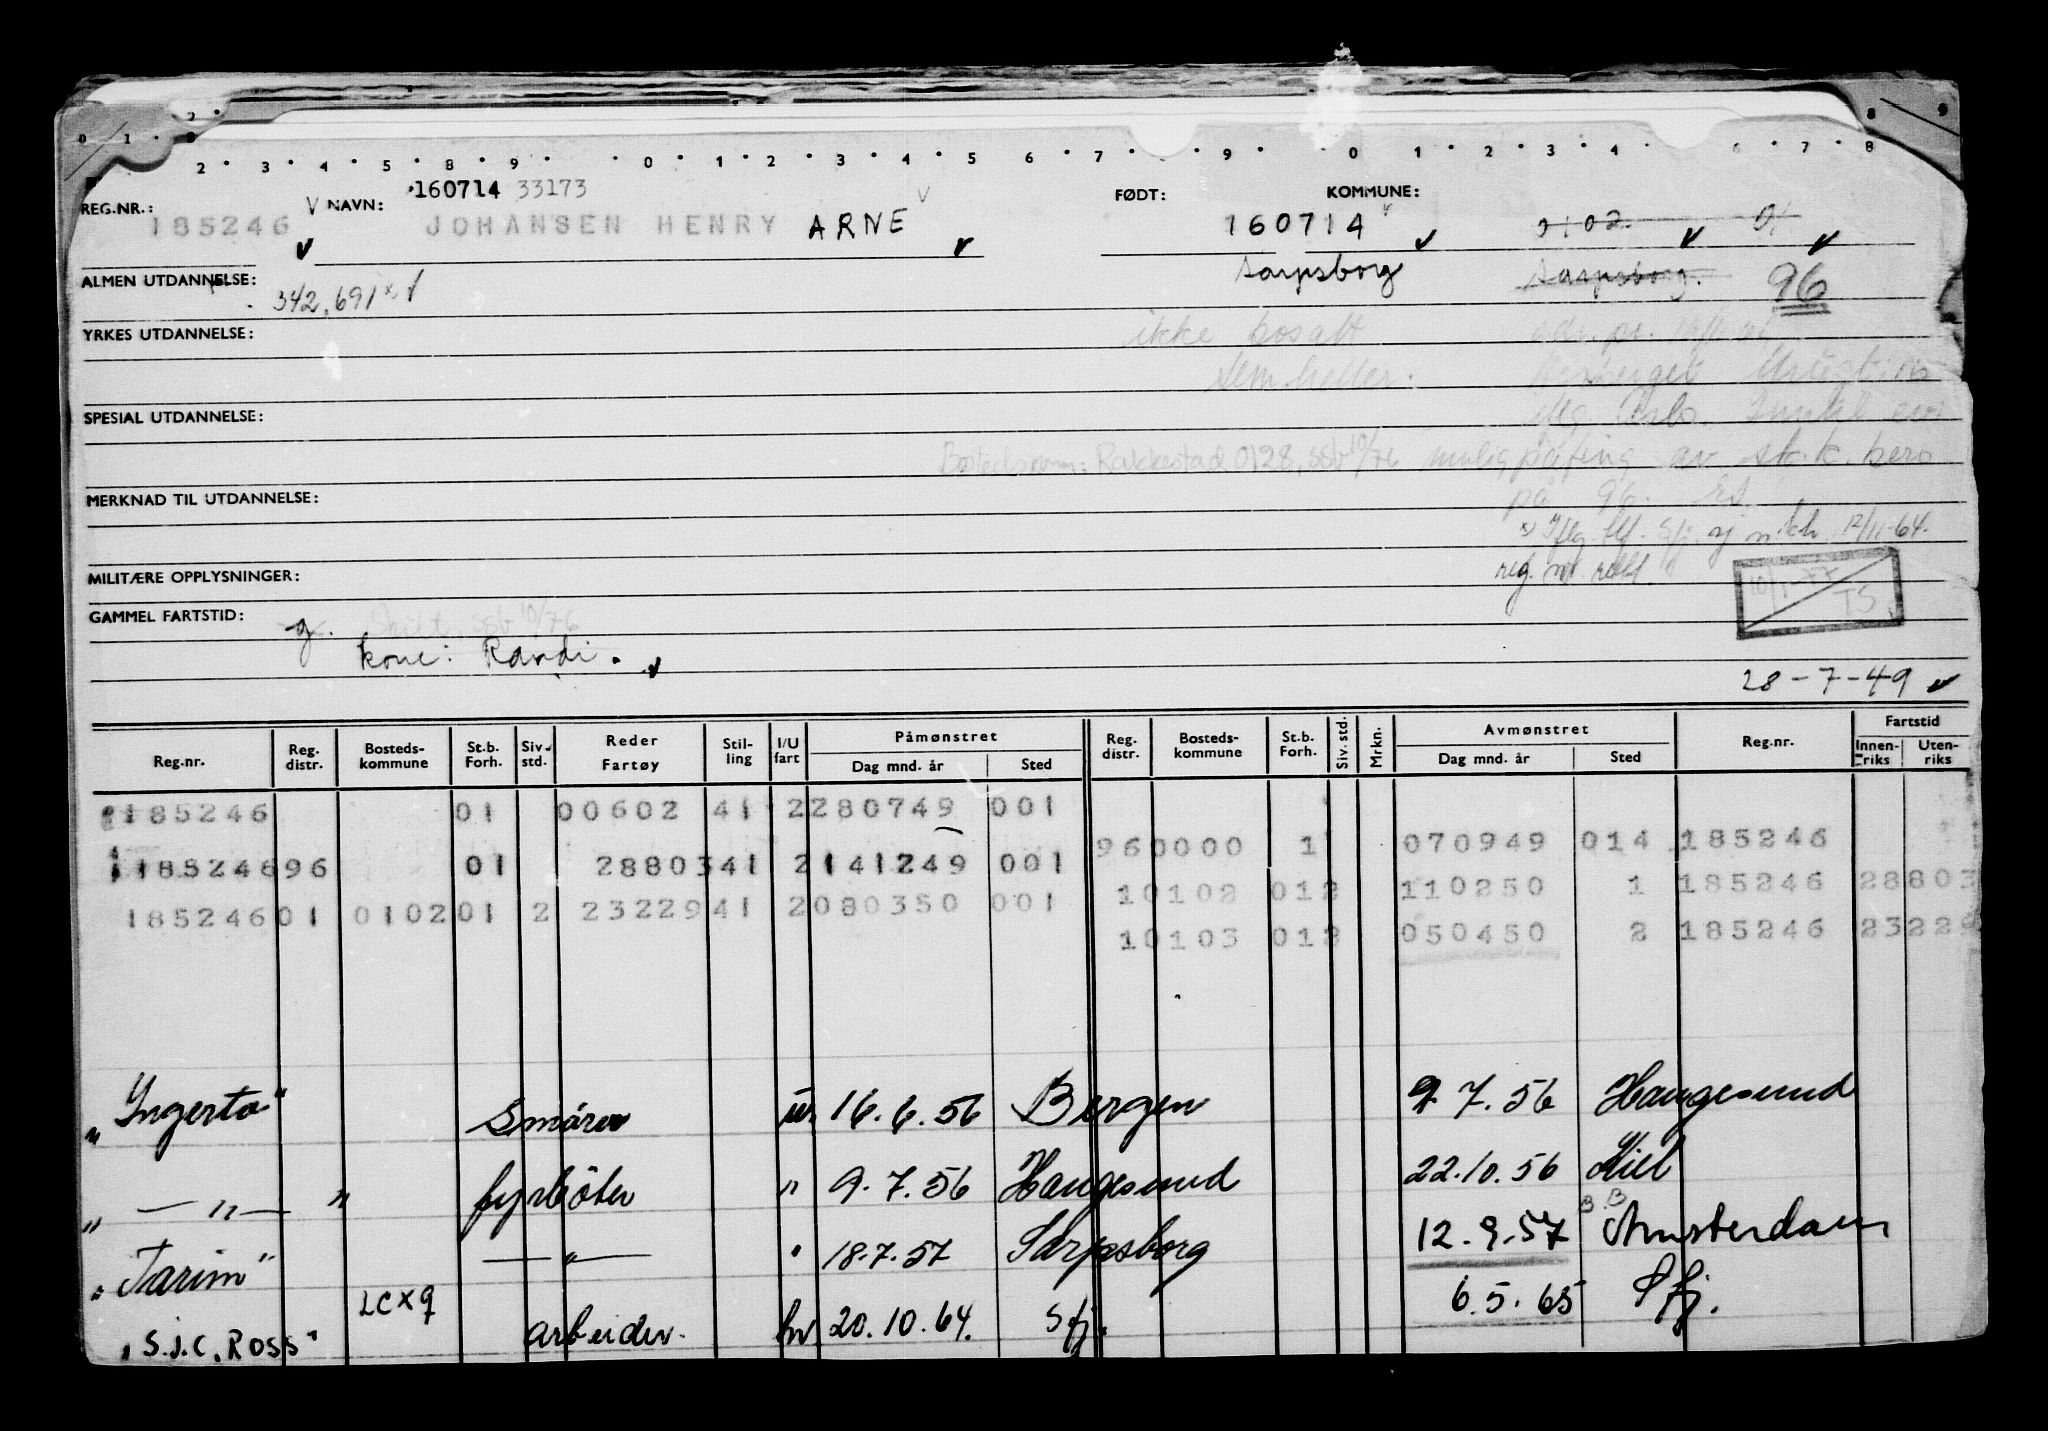 2
0 1 8 8 9
2 3 4 5 8 9 0 1 2 3 4 5 6 7 9 0 1 2 3 4 6 7 8
REG.NR.: 185246 NAVN: 160714 33173 FØDT: KOMMUNE:
JOHANSEN HENRY ARNE 160714 0102 01
ALMEN UTDANNELSE: 342.691 x Sarpsborg Sarpsborg. 96
YRKES UTDANNELSE: ikke bosatt
SPESIAL UTDANNELSE: Oslo.
Bostedskomm: Rakkestad 0128, SSb 10/76 mulig av st.k. bero
MERKNAD TIL UTDANNELSE: på 96.
12/11-64.
MILITÆRE OPPLYSNINGER: reg. nr.
10/1-77 TS
GAMMEL FARTSTID: g. Skilt, SSb 10/76
kone: Randi.
28-7-49
Reg.nr. Reg. distr. Bosteds-kommune St.b. Forh. Siv. std. Reder Fartøy Stil-ling I/U fart Påmønstret Dag mnd. år Sted Reg. distr. Bosteds-kommune St.b. Forh. Siv. std. Mrkn. Avmønstret Dag mnd. år Sted Reg.nr. Fartstid Innen-riks Uten-riks
185246 01 00602 41 2 280749 001
960000 1 070949 014 185246
185246 96 01 28803 41 2 141249 001
10102 012 110250 1 185246 28803
185246 01 0102 01 2 23229 41 2 080350 001
10103 012 050450 2 185246 23229
"Ingerto" Smører 16.6.56 Bergen 9.7.56 Haugesund
" — " — " fyrbøter " 9.7.56 Haugesund 22.10.56 Kiel
"Tarim" — " — " 18.7.57 Sarpsborg 12.9.57 B.B Amsterdam
"S.J.C. ROSS" LCXQ arbeider. 20.10.64. Sfj. 6.5.65 Sfj.